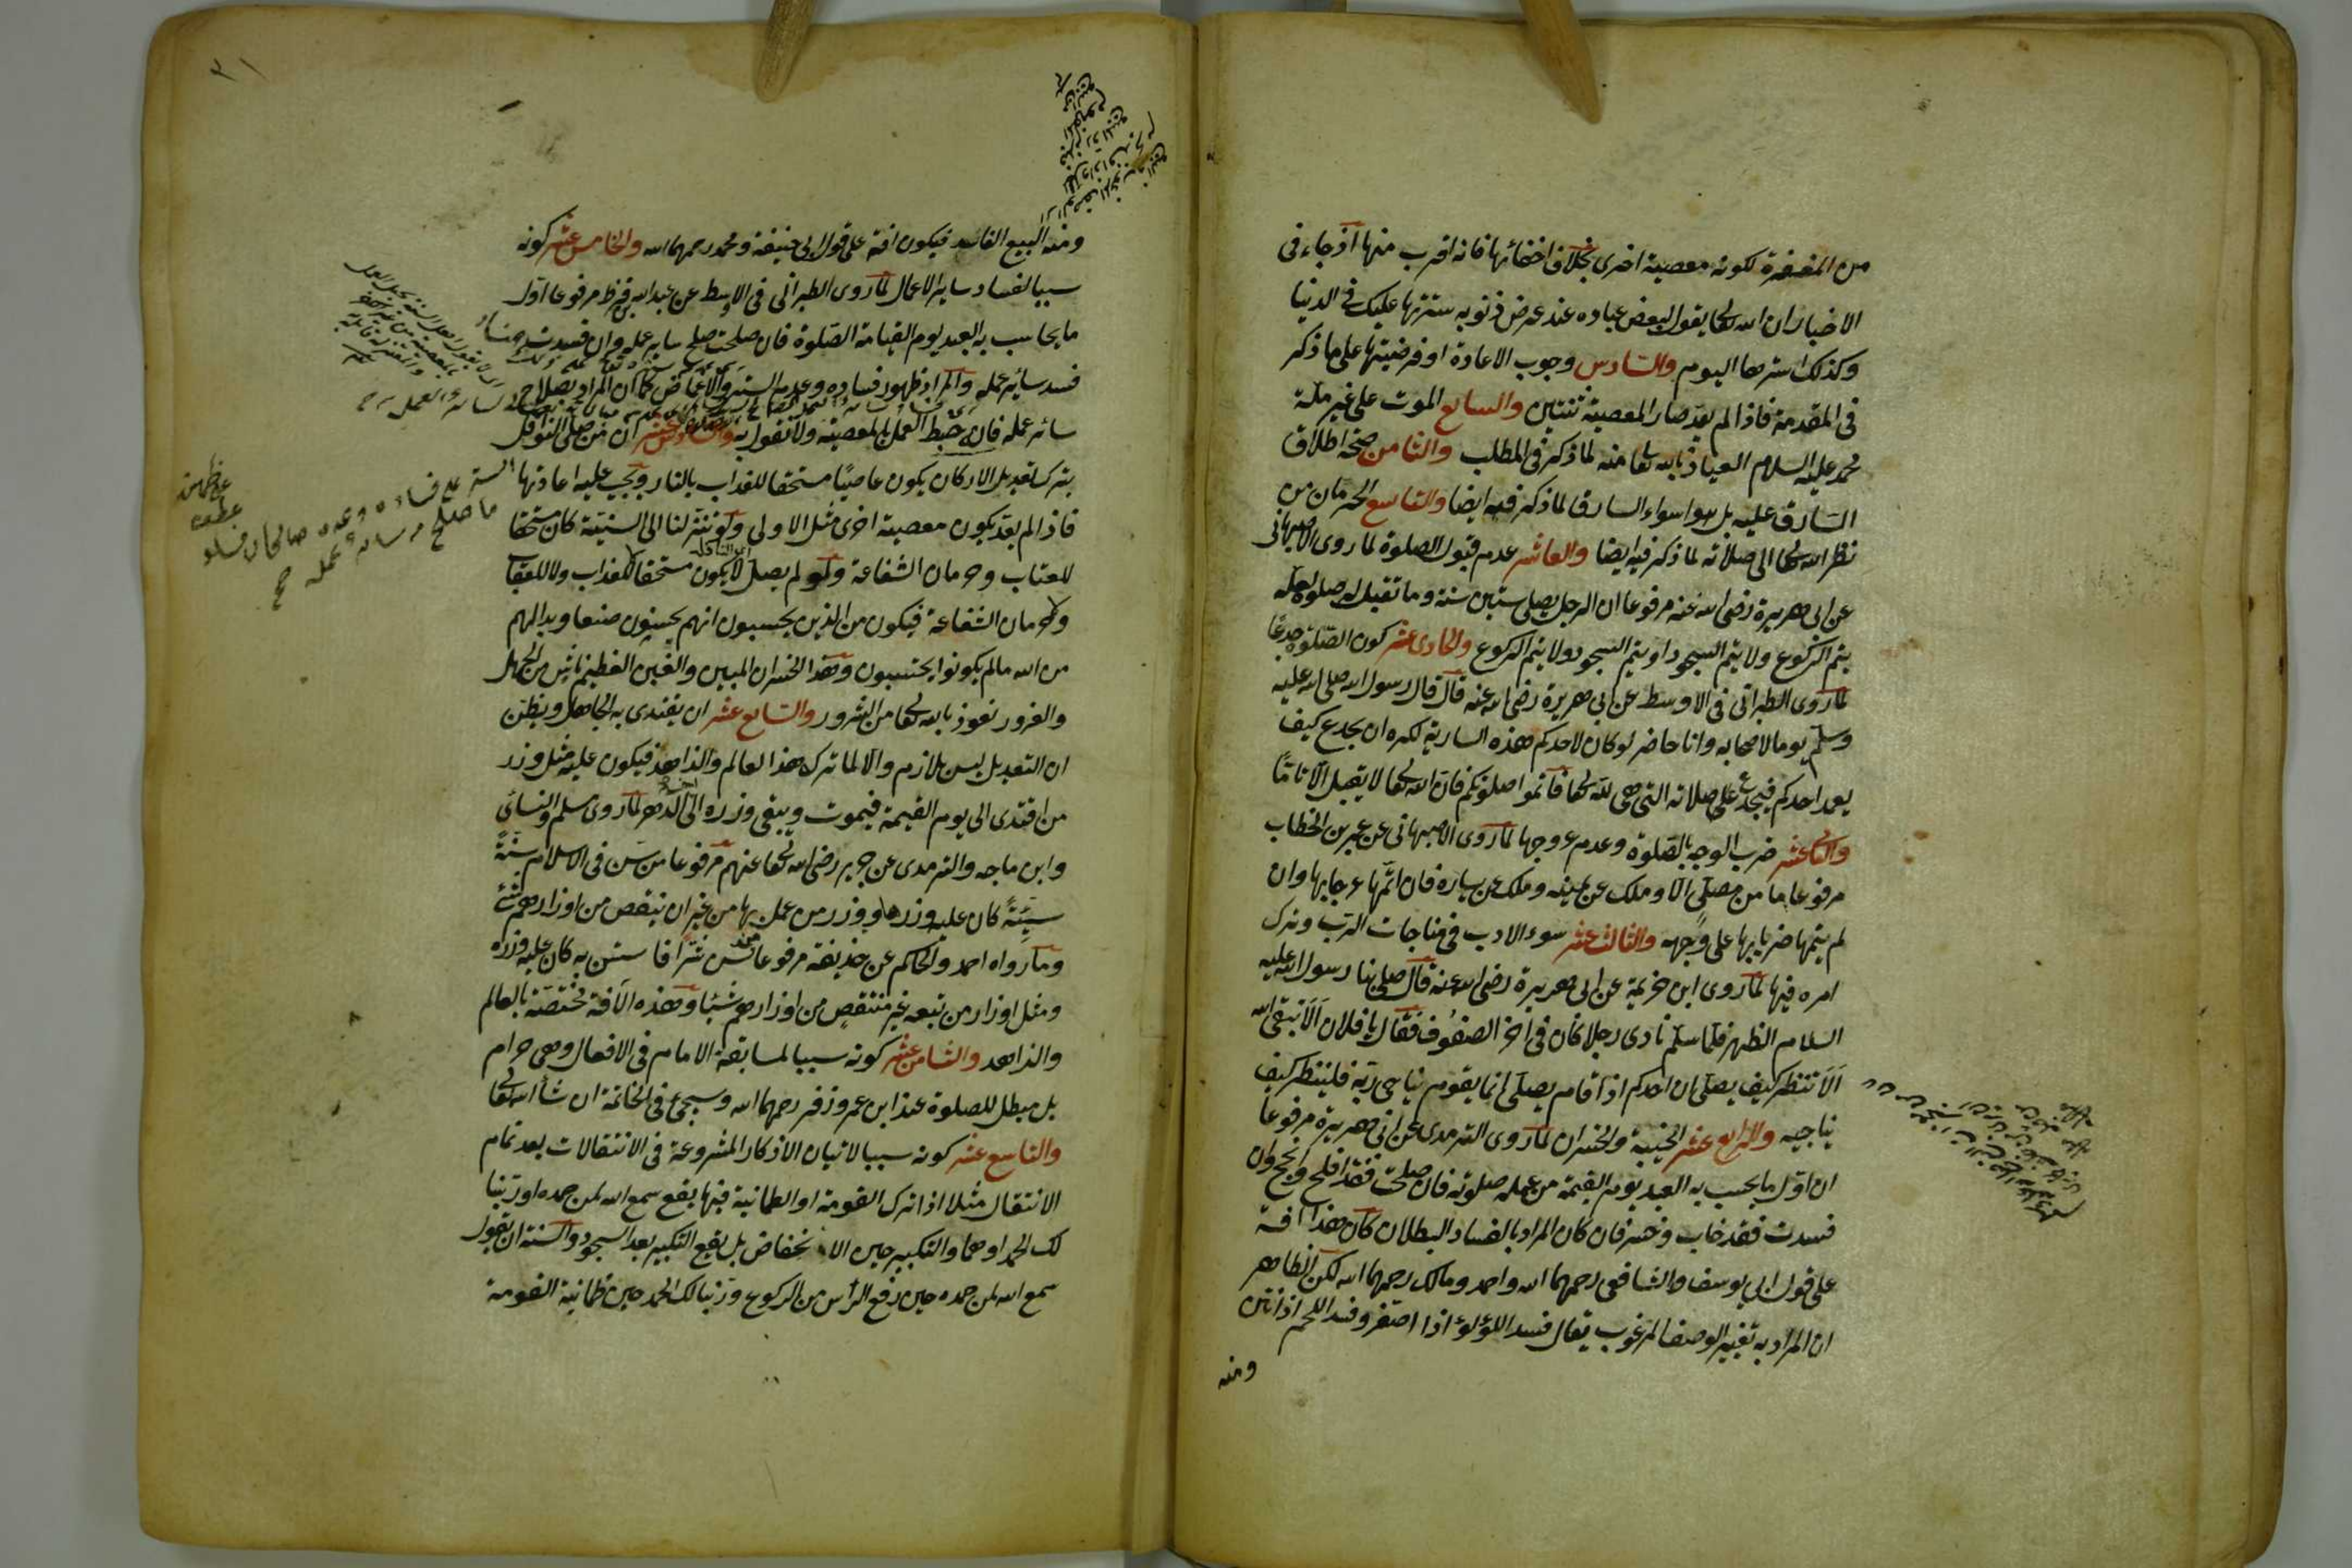 من المغفرة لكونه معصية اخرى بخلاف اخفائها فانه اقرب منها اذ جاء فى
الاخبار ان الله تعالى يقول لبعض عباده عند عرض ذنوبه سترتها عليك فى الدنيا
وكذلك استرها اليوم والسادس وجوب الاعادة او فرضيتها على ما ذكر
فى المقدمة فاذا لم يعد صار المعصية ثنتين والسابع الموت على غير ملة
محمد عليه السلام العياذ بالله تعالى منه لما ذكر فى المطلب والثامن صحة اطلاق
السارق عليه بل هو اسواء السارق لما ذكر فيه ايضا والتاسع الحرمان من
نظر الله تعالى الى صلاته لما ذكر فيه ايضا والعاشر عدم قبول الصلوة لما روى الاصبهانى
عن ابى هريرة رضى الله عنه مرفوعا ان الرجل يصلى ستين سنة وما تقبل له صلوة لعله
يتم الركوع ولا يتم السجود او يتم السجود ولا يتم الركوع والحادى عشر كون الصلوة جدعا
لما روى الطبرانى فى الاوسط عن ابى هريرة رضى الله عنه قال قال رسول الله صلى الله عليه
وسلم يوما لاصحابه وانا حاضر لو كان لاحدكم هذه السارية لكره ان يجدع كيف
يعمد احدكم فيجدع على صلاته التى هى لله تعالى فاتموا صلوتكم فان الله تعالى لا يقبل الا تاما
والثانى عشر ضرب الوجه بالصلوة وعدم عروجها لما روى الاصبهانى عن عمر بن الخطاب
مرفوعا ما من مصلى الا وملك عن يمينه وملك عن يساره فان اتمها عرجا بها وان
لم يتمها ضربا بها على وجهه والثالث عشر سوء الادب فى مناجات الرب وترك
امره فيها لما روى ابن خزيمة عن ابى هريرة رضى الله عنه قال صلى بنا رسول الله عليه
السلام الظهر فلما سلم نادى رجلا كان فى اخر الصفوف فقال يا فلان الا تتقى الله
الا تنظر كيف يصلى ان احدكم اذا قام يصلى انما يقوم يناجى ربه فلينظر كيف
يناجيه والرابع عشر الخيبة والخسران لما روى الترمدى عن ابى هريرة مرفوعا
ان اول ما يحسب به العبد يوم القيمة من عمله صلوته فان صلحت فقد افلح ونجح وان
فسدت فقد خاب وخسر فان كان المراد بالفساد البطلان كان هذا افة
على قول ابى يوسف والشافعى رحمهما الله واحمد ومالك رحمهما الله لكن الظاهر
ان المراد به تغيير الوصف المرغوب يقال فسد اللؤلؤ اذا اصفر وفسد اللحم اذا نتن
ومنه
٣١
ومنه البيع الفاسد فيكون افة على قول ابى حنيفة ومحمد رحمهما الله والخامس عشر كونه
سببا لفساد سائر الاعمال لما روى الطبرانى فى الاوسط عن عبد الله بن قرظ مرفوعا اول
ما يحاسب به العبد يوم القيامة الصلوة فان صلحت صلح سائر عمله وان فسدت
فسد سائر عمله والمراد ظهور فساده وعدم الستر والاغماض كما ان المراد بصلاح
سائر عمله فان حبط العمل بالمعصية ولا نقول به والسادس عشر ان من صلى النوافل
بترك تعديل الاركان يكون عاصيا مستحقا للعذاب بالنار ويجب عليه اعادتها
فاذا لم يعد يكون معصية اخرى مثل الاولى ولو تنزلنا الى السنية كان مستحقا
للعتاب وحرمان الشفاعة ولو لم يصل لا يكون مستحقا للعذاب ولا للعقاب
ولا حرمان الشفاعة فيكون من الذين يحسبون انهم يحسنون صنعا وبدا لهم
من الله ما لم يكونوا يحتسبون وهذا الخسران المبين والغبن العظيم ناش من الجهل
والغرور نعوذ بالله تعالى من الشرور والسابع عشر ان يقتدى به الجاهل ويظن
ان التعديل ليس بلازم والا لما ترك هذا العالم والزاهد فيكون عليه مثل وزر
من اقتدى الى يوم القيمة فيموت ويبقى وزره الى اخر الدهر لما روى مسلم والنسائى
وابن ماجه والترمدى عن جرير رضى الله تعالى عنهم مرفوعا من سن فى الاسلام سنة
سيئة كان عليه وزرها ووزر من عمل بها من غير ان ينقص من اوزارهم شئ
وما رواه احمد والحاكم عن حذيفة مرفوعا من سن شرا فاستن به كان عليه وزره
ومثل اوزار من تبعه غير منتقص من اوزارهم شيئا وهذه الآفة مختصة بالعالم
والزاهد والثامن عشر كونه سببا لمسابقة الامام فى الافعال وهى حرام
بل مبطل للصلوة عند ابن عمر وزفر رحمهما الله وسيجئ فى الخاتمة ان شاء الله تعالى
والتاسع عشر كونه سببا لاتيان الاذكار المشروعة فى الانتقالات بعد تمام
الانتقال مثلا اذا ترك القومة او الطمانية فيها يقع سمع الله لمن حمده او ربنا
لك الحمد او هما والتكبير حين الانخفاض بل يقع التكبير بعد السجود والسنة ان يقول
سمع الله لمن حمده حين رفع الرأس من الركوع وربنا لك الحمد حين طمانية القومة